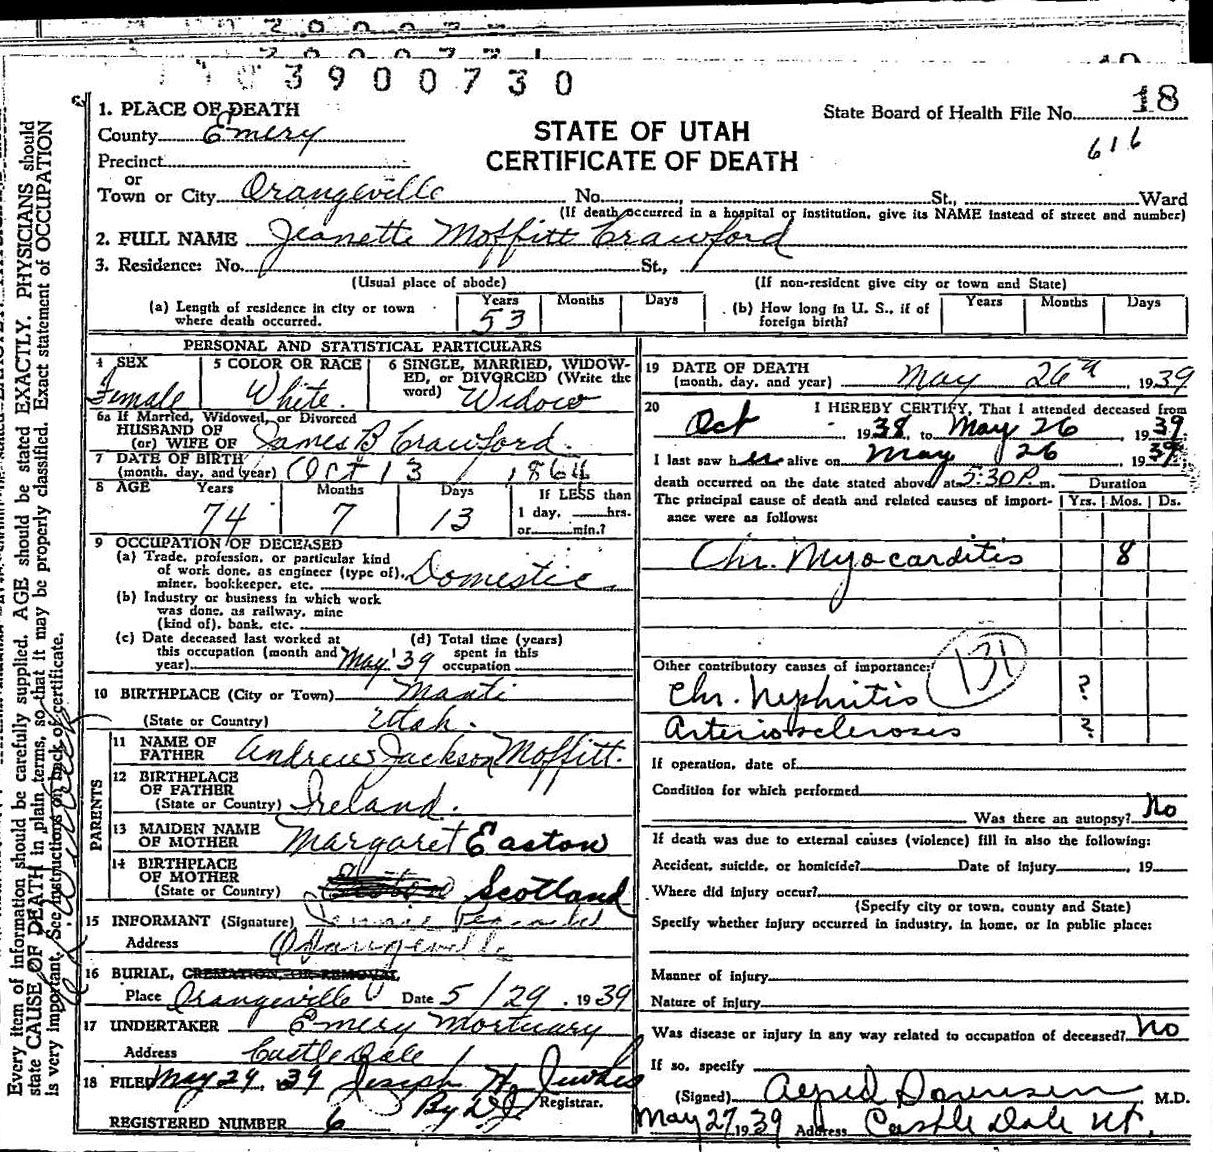 3900730
18
State Board of Health File No.
616
STATE OF UTAH
CERTIFICATE OF DEATH
1. PLACE OF DEATH
County Emery
Precinct
or
Town or City Orangeville No. St., Ward
(If death occurred in a hospital or institution, give its NAME instead of street and number)
2. FULL NAME Jeanette Moffitt Crawford
3. Residence: No. St.,
(Usual place of abode) (If non-resident give city or town and State)
(a) Length of residence in city or town where death occurred. Years 53 Months Days
(b) How long in U. S., if of foreign birth? Years Months Days
PERSONAL AND STATISTICAL PARTICULARS
4 SEX Female
5 COLOR OR RACE White.
6 SINGLE, MARRIED, WIDOWED, or DIVORCED (Write the word) Widow
6a If Married, Widowed, or Divorced
HUSBAND OF
(or) WIFE OF James B Crawford.
7 DATE OF BIRTH
(month, day, and year) Oct 13, 1864
8 AGE Years 74 Months 7 Days 13
If LESS than
1 day, hrs.
or min.?
9 OCCUPATION OF DECEASED
(a) Trade, profession, or particular kind
of work done, as engineer (type of),
miner, bookkeeper, etc. Domestic
(b) Industry or business in which work
was done, as railway, mine
(kind of), bank, etc.
(c) Date deceased last worked at
this occupation (month and
year) May '39
(d) Total time (years)
spent in this
occupation
10 BIRTHPLACE (City or Town) Manti
(State or Country) Utah.
PARENTS
11 NAME OF
FATHER Andrew Jackson Moffitt.
12 BIRTHPLACE
OF FATHER
(State or Country) Ireland.
13 MAIDEN NAME
OF MOTHER Margaret Easton
14 BIRTHPLACE
OF MOTHER
(State or Country) Scotland
15 INFORMANT (Signature) Jennie
Address Orangeville
16 BURIAL, CREMATION, OR REMOVAL
Place Orangeville Date 5/29, 1939
17 UNDERTAKER Emery Mortuary
Address Castle Dale
18 FILED May 29, 39 Joseph H.
By Registrar.
REGISTERED NUMBER 6
19 DATE OF DEATH
(month, day, and year) May 26th, 1939
20 I HEREBY CERTIFY, That I attended deceased from
Oct, 1938, to May 26, 1939
I last saw her alive on May 26, 1939
death occurred on the date stated above at 5:30 P.m. Duration
The principal cause of death and related causes of importance were as follows: Yrs. Mos. Ds.
Chr. Myocarditis 8
Other contributory causes of importance: 131
Chr. Nephritis ?
Arteriosclerosis ?
If operation, date of
Condition for which performed
Was there an autopsy? No
If death was due to external causes (violence) fill in also the following:
Accident, suicide, or homicide? Date of injury, 19
Where did injury occur?
(Specify city or town, county and State)
Specify whether injury occurred in industry, in home, or in public place:
Manner of injury
Nature of injury
Was disease or injury in any way related to occupation of deceased? No
If so, specify
(Signed) M.D.
May 27, 1939 Address Castle Dale Ut.
Every item of information should be carefully supplied. AGE should be stated EXACTLY. PHYSICIANS should
state CAUSE OF DEATH in plain terms, so that it may be properly classified. Exact statement of OCCUPATION
is very important. See instructions on back of certificate.